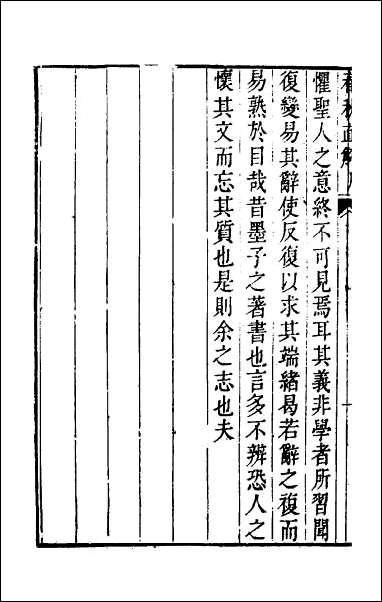 春秋直解
懼聖人之意終不可見焉耳其義非學者所習聞
復變易其辭使反復以求其端緒曷若辭之復而
易熟於目哉昔墨子之著書也言多不辨恐人之
懷其文而忘其質也是則余之志也夫